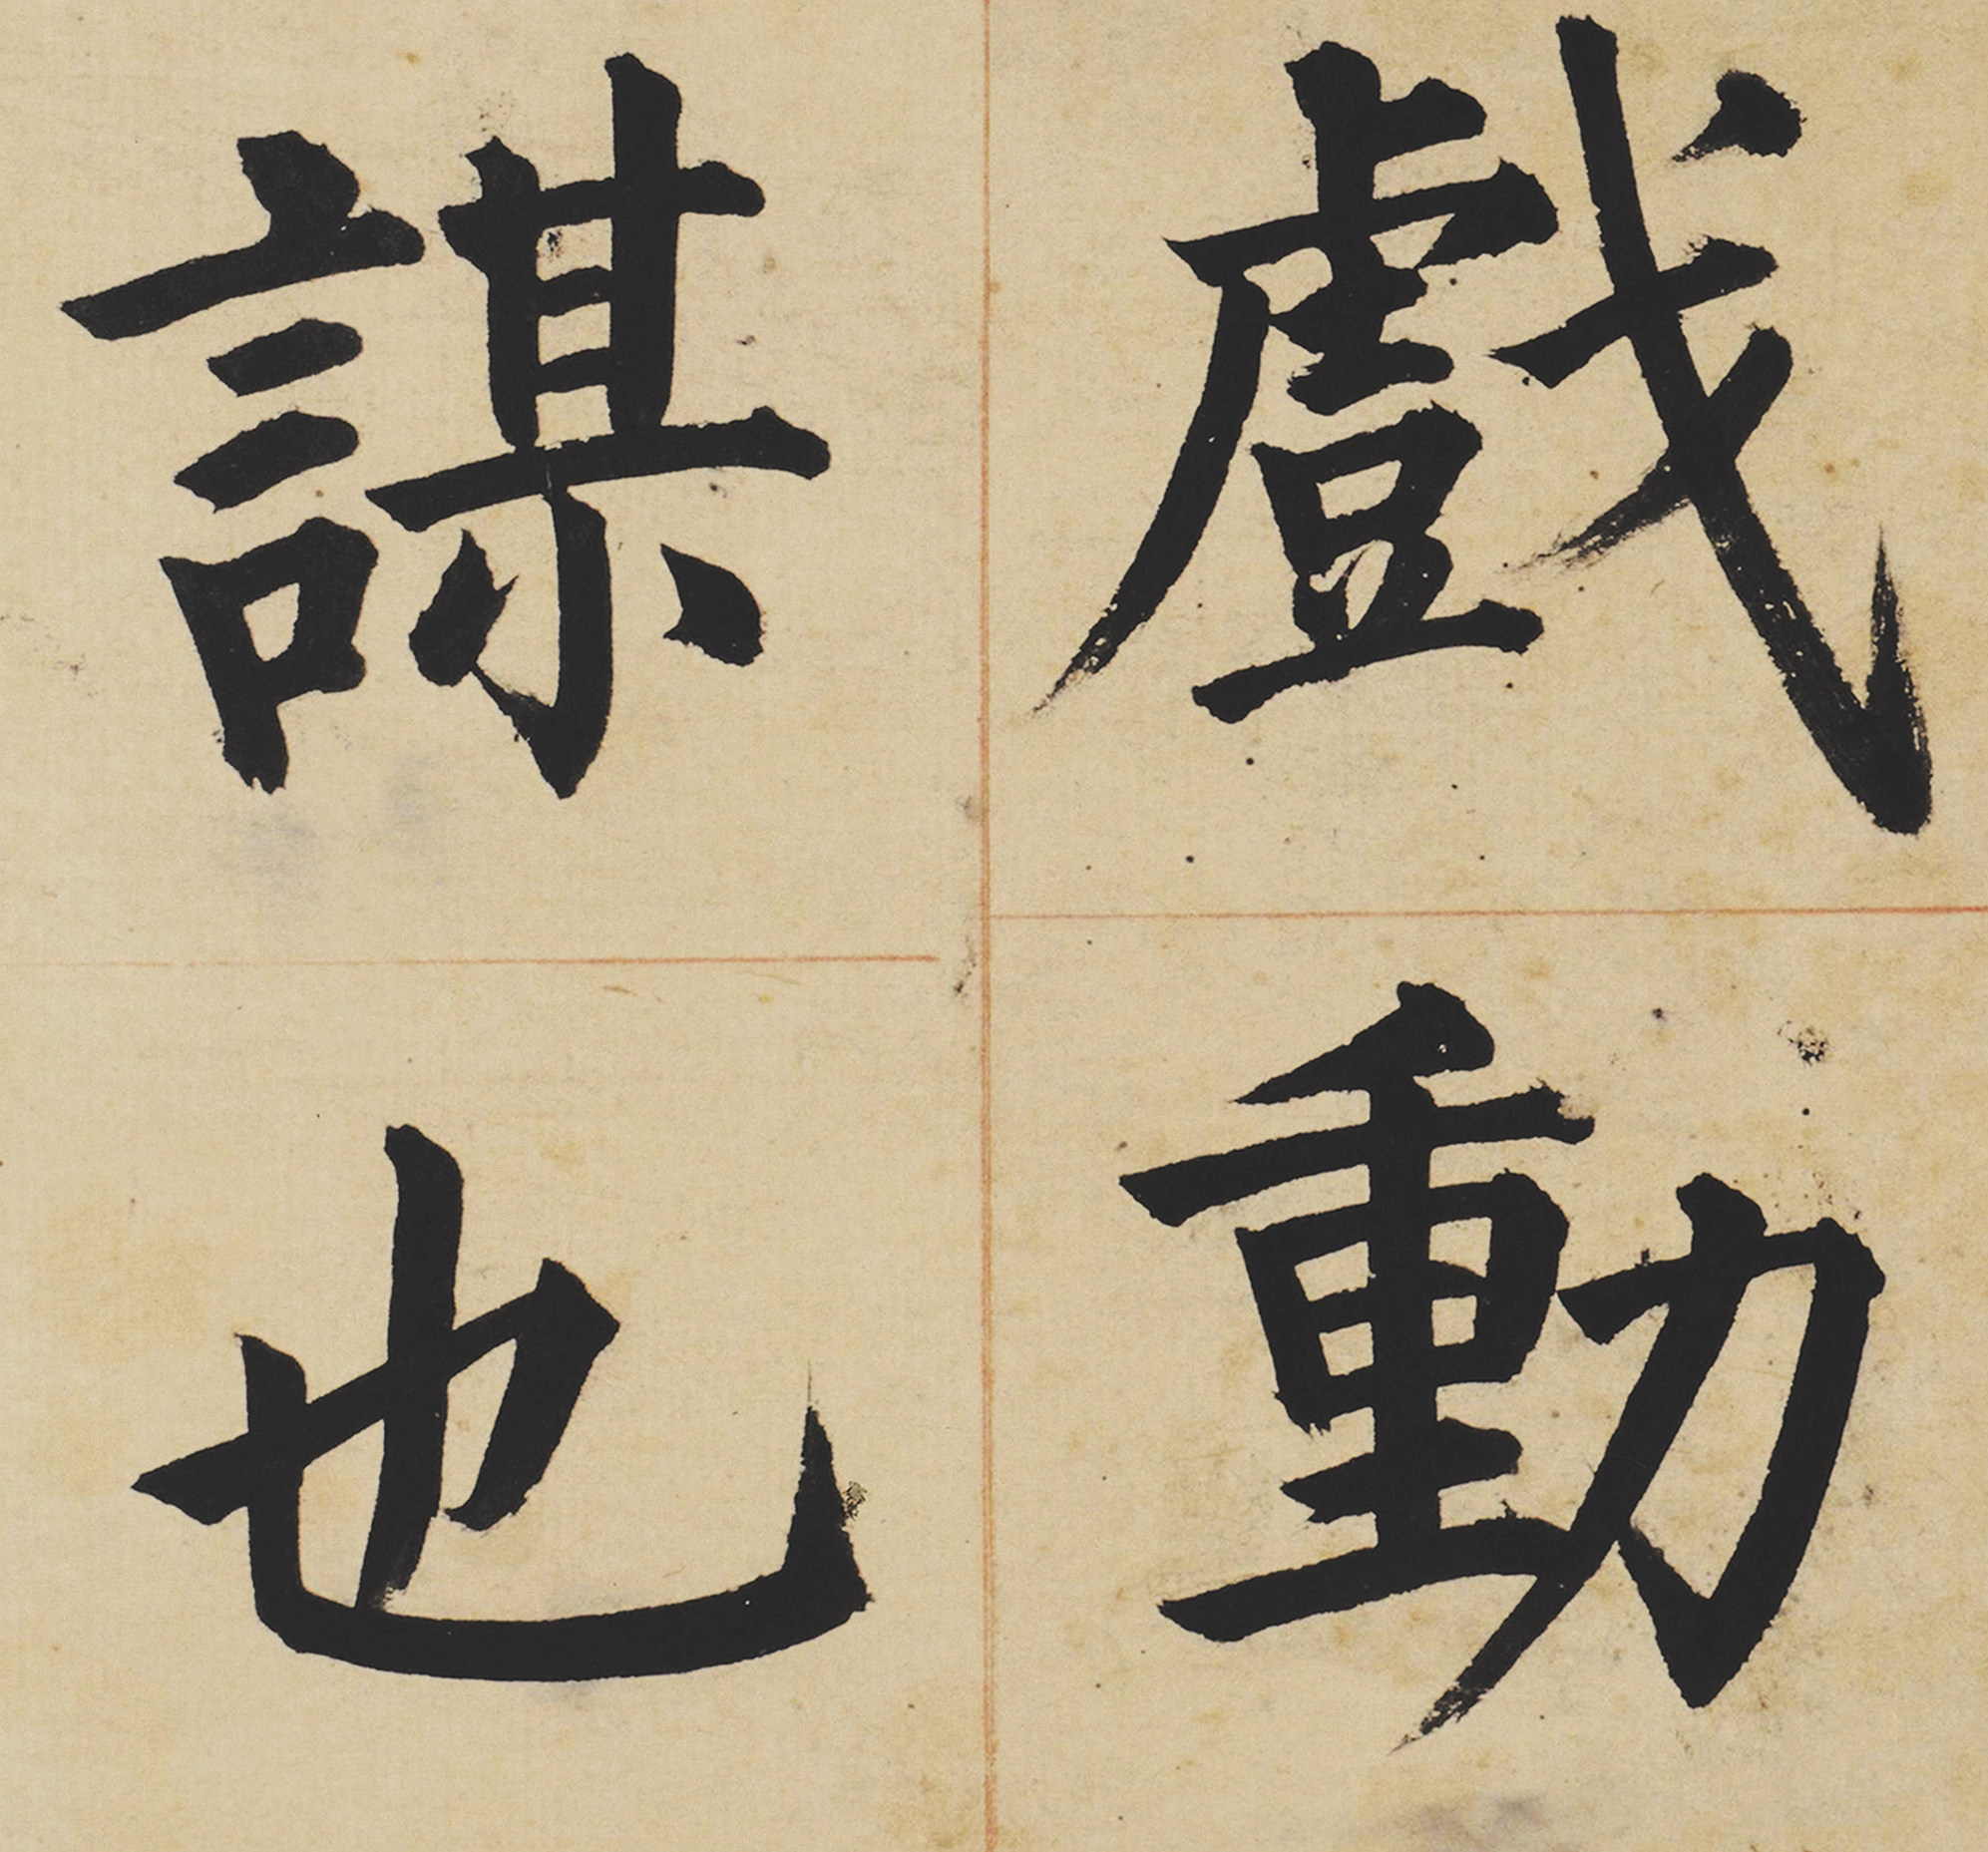 戲動
謀也